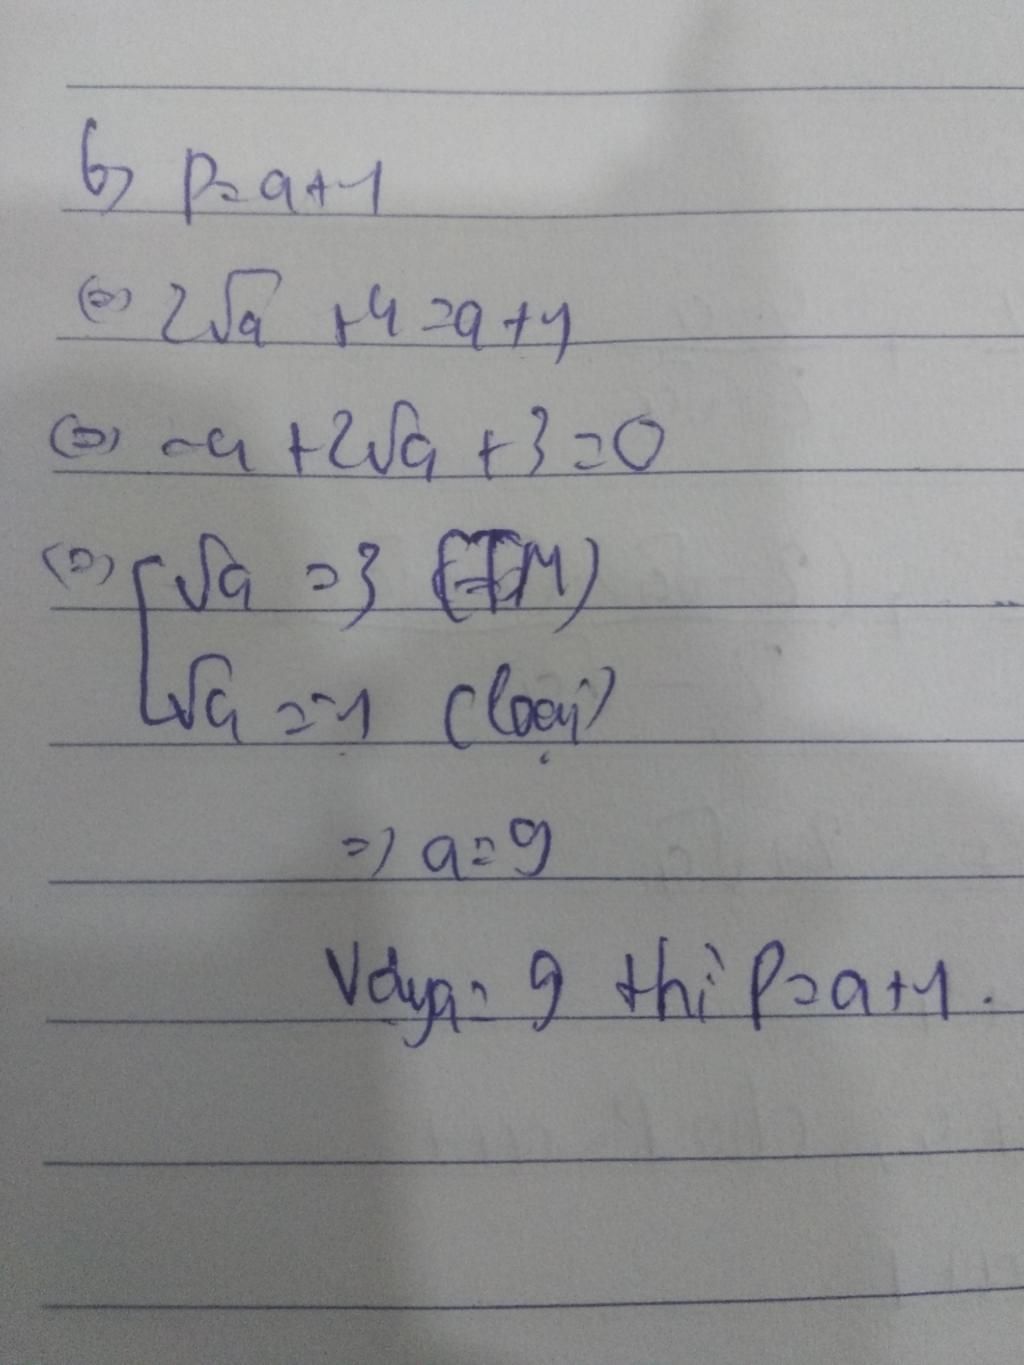 b) P = a + 1
(=) 2√a + 4 = a + 1
(=) -a + 2√a + 3 = 0
(=) [ √a = 3 (TM)
√a = -1 (loại)
=) a = 9
Vậy a = 9 thì P = a + 1.